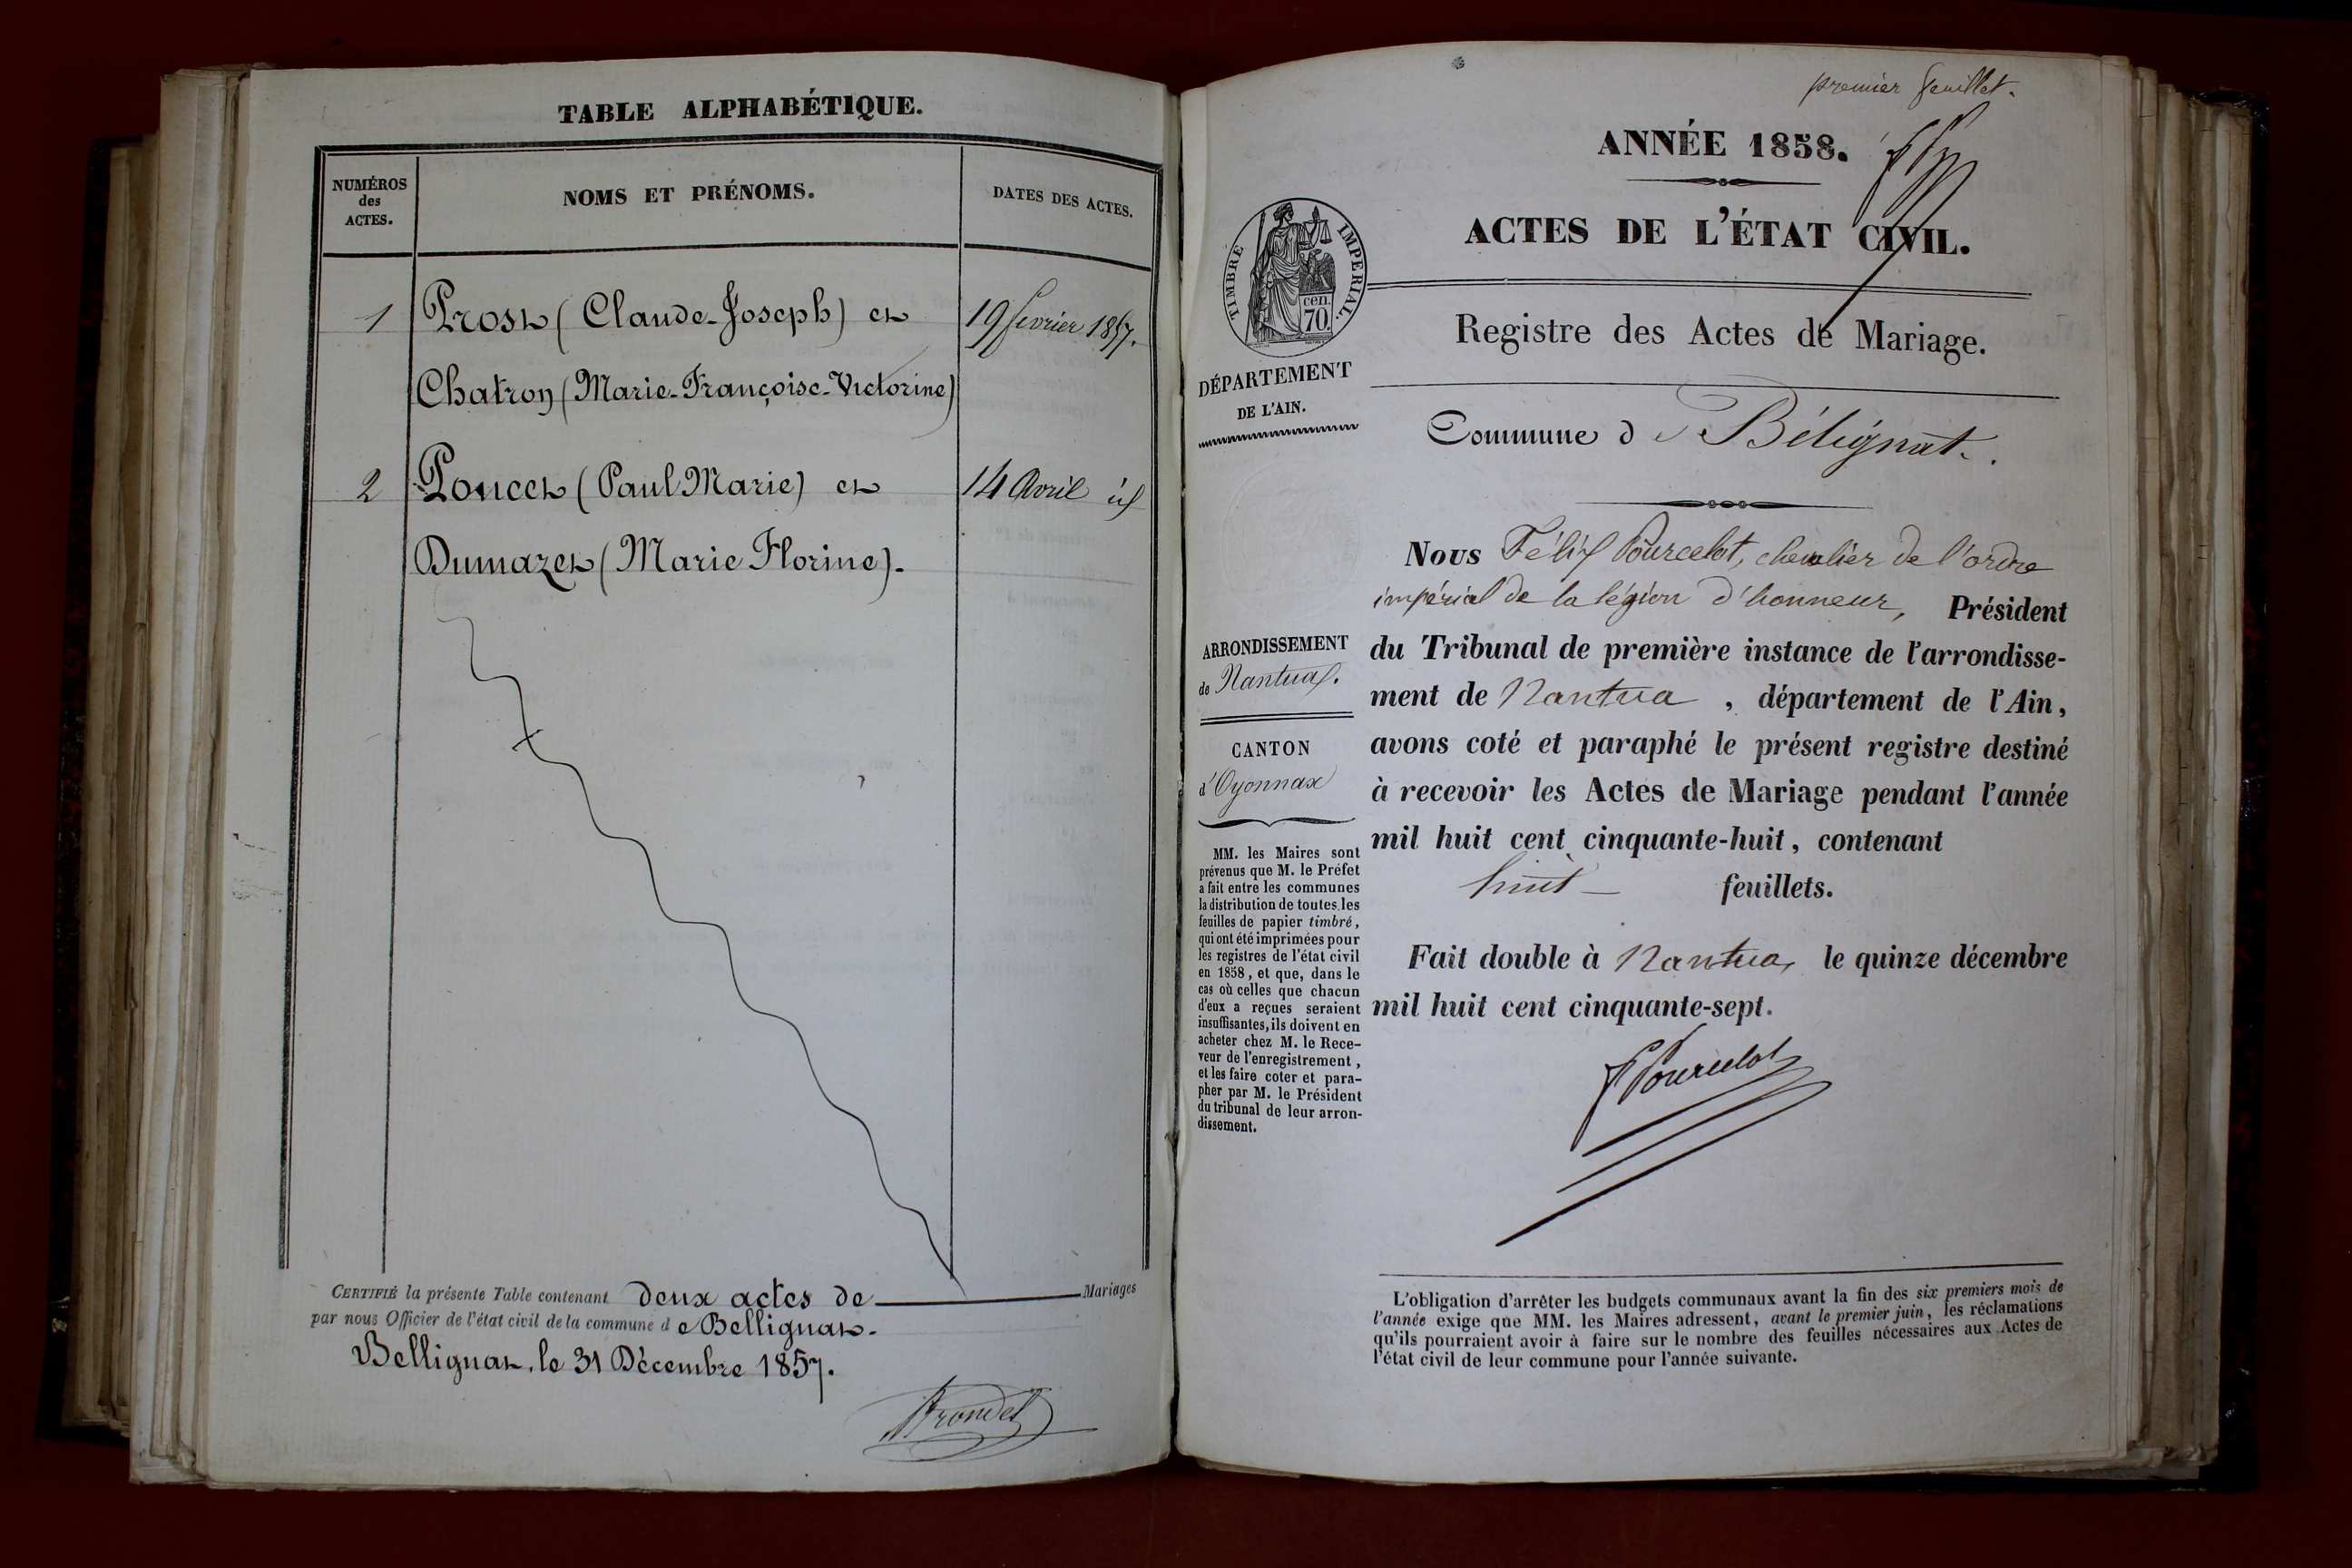 TABLE ALPHABÉTIQUE.
NUMÉROS
des
ACTES.
NOMS ET PRÉNOMS.
DATES DES ACTES.
1 Prost (Claude-Joseph) et 19 février 1857.
Chatron (Marie-Françoise-Victorine)
2 Poncet (Paul Marie) et 14 Avril id
Dumazet (Marie Florine).
CERTIFIÉ la présente Table contenant deux actes de Mariages
par nous Officier de l'état civil de la commune d e Bellignat.
Bellignat, le 31 Décembre 1857.
premier feuillet.
ANNÉE 1858.
ACTES DE L'ÉTAT CIVIL.
TIMBRE IMPERIAL.
cen.
70.
Registre des Actes de Mariage.
DÉPARTEMENT
DE L'AIN.
Commune d e Bélignat.
Nous Félix Pourcelot, chevalier de l'ordre
impérial de la légion d'honneur, Président
du Tribunal de première instance de l'arrondisse-
ment de Nantua, département de l'Ain,
avons coté et paraphé le présent registre destiné
à recevoir les Actes de Mariage pendant l'année
mil huit cent cinquante-huit, contenant
huit feuillets.
Fait double à Nantua, le quinze décembre
mil huit cent cinquante-sept.
F Pourcelot
ARRONDISSEMENT
de Nantua.
CANTON
d'Oyonnax
MM. les Maires sont
prévenus que M. le Préfet
a fait entre les communes
la distribution de toutes les
feuilles de papier timbré,
qui ont été imprimées pour
les registres de l'état civil
en 1858, et que, dans le
cas où celles que chacun
d'eux a reçues seraient
insuffisantes, ils doivent en
acheter chez M. le Rece-
veur de l'enregistrement,
et les faire coter et para-
pher par M. le Président
du tribunal de leur arron-
dissement.
L'obligation d'arrêter les budgets communaux avant la fin des six premiers mois de
l'année exige que MM. les Maires adressent, avant le premier juin, les réclamations
qu'ils pourraient avoir à faire sur le nombre des feuilles nécessaires aux Actes de
l'état civil de leur commune pour l'année suivante.